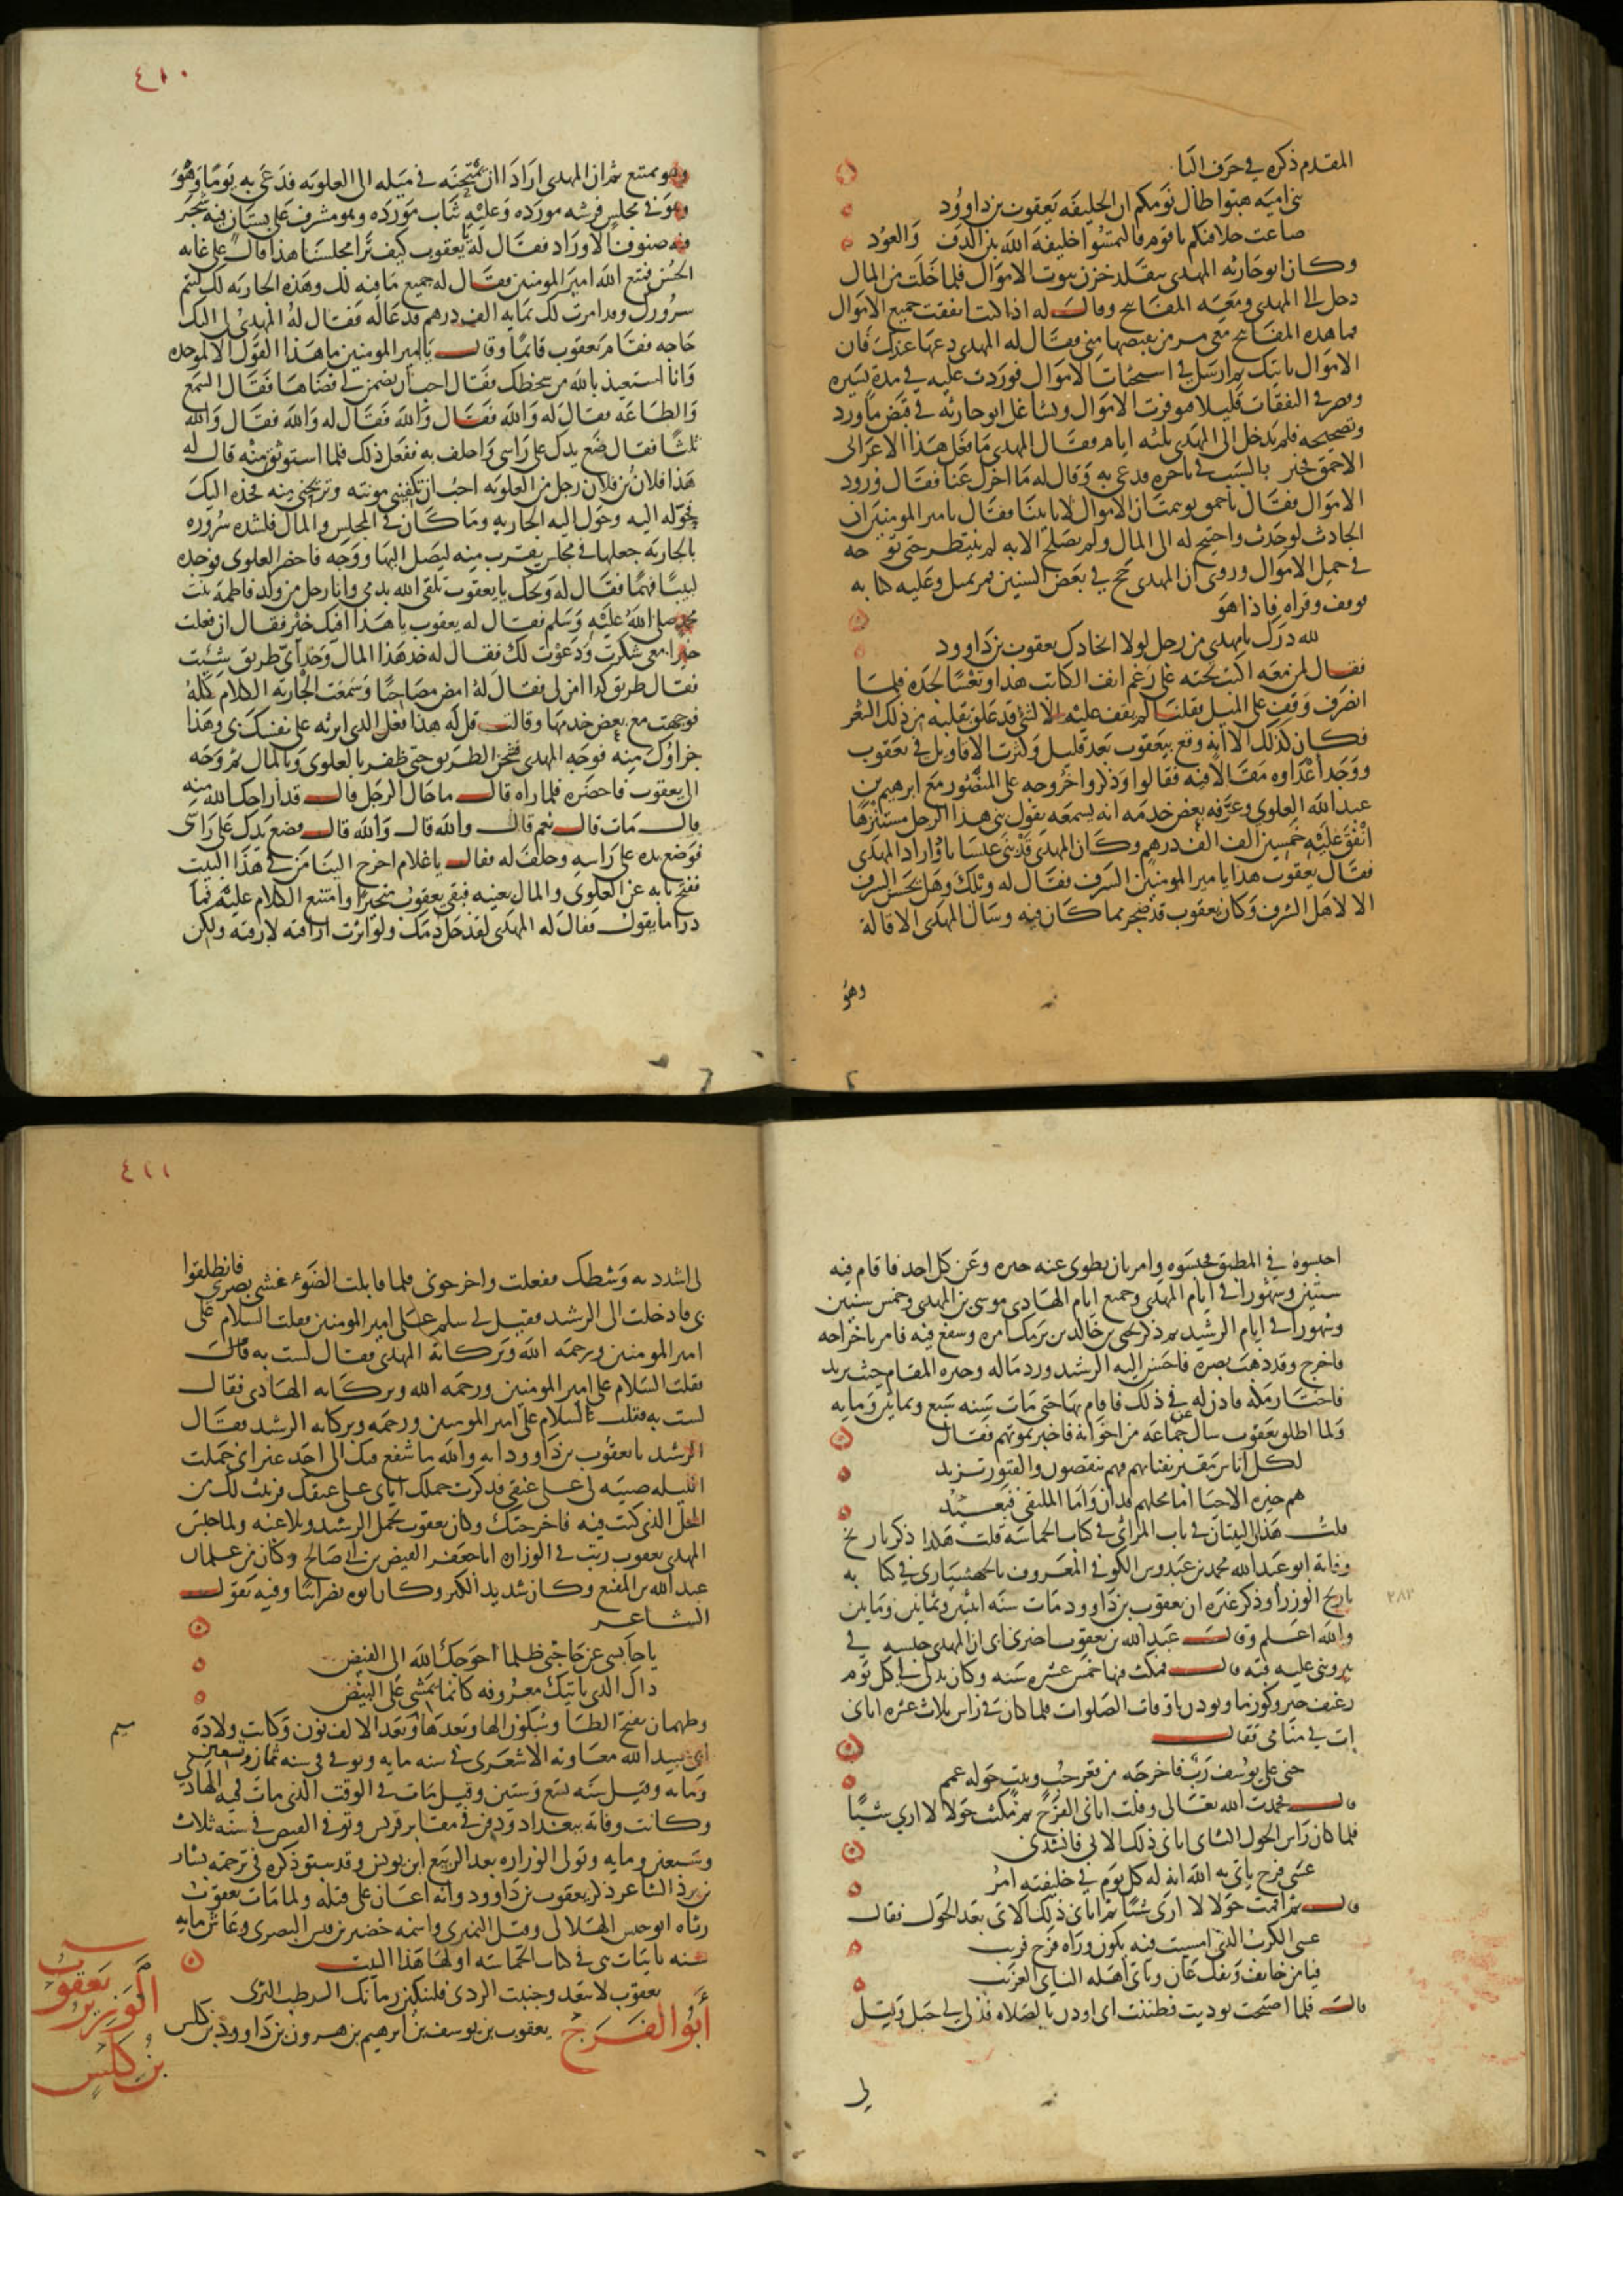 المقدم ذكره في حرف البا
بني امية هبوا طال نومكم ان الخليفة يعقوب بن داوود
ضاعت خلافتكم يا قوم فالتمسوا خليفة الله بين الدف والعود
وكان ابو حارثه المهدي يتقلد خزن بيوت الاموال فلما خلت من المال
دخل الى المهدي ومعه المفاتيح وقال له اذا كنت انفقت جميع الاموال
فما هذه المفاتيح معي مر من يقبضها مني فقال له المهدي دعها عندك فان
الاموال تاتيك ثم ارسل في استحثاث الاموال فوردت عليه في مدة يسيره
وقصر في النفقات قليلا فتوفرت الاموال وتشاغل ابو حارثه في قبض ما ورد
وتصحيحه فلم يدخل الى المهدي ثلثه ايام فقال المهدي ما فعل هذا الاعرابي
الاحمق فخبر بالسبب في تاخره فدعى به وقال له ما اخرك عنا فقال ورود
الاموال فقال يا احمق توهمت ان الاموال لا تاتينا فقال يا امير المومنين ان
الحادث لو حدث واحتيج له الى المال ولم يصلح الا به لم ينتظر حتى توجه
في حمل الاموال وروى ان المهدي حج في بعض السنين فمر بميل وعليه كتابه
فوقف وقراه فاذا هو
لله درك يا مهدي من رجل لولا اتخاذك يعقوب بن داوود
فقال لمن معه اكتب تحته على رغم انف الكاتب هذا وتعسا لجده فلما
انصرف وقف على الميل فقلنا لم يقف عليه الا لشي قد علق بقلبه من ذلك الشعر
فكان كذلك لانه وقع بيعقوب بعد قليل وكثرت الاقاويل في يعقوب
ووجد اعداوه مقالا فيه فقالوا وذكروا خروجه على المنصور مع ابرهيم بن
عبد الله العلوي وعرفه بعض خدمه انه يسمعه يقول بنى هذا الرجل مستنزها
انفق عليه خمسين الف الف درهم وكان المهدي قد بنى عيساباذ واراد المهدي
فقال يعقوب هذا يا امير المومنين السرف فقال له ويلك وهل يحسن السرف
الا لاهل الشرف وكان يعقوب قد ضجر مما كان فيه وسال المهدي الاقالة
وهو
٤١٠
وهو ممتنع ثم ان المهدي اراد ان يمتحنه في ميله الى العلويه فدعى به يوما وهو
وهو في مجلس فرشه مورده وعليه ثياب مورده وهو مشرف على بستان فيه شجر
فيه صنوف الاوراد فقال له يا يعقوب كيف ترا مجلسنا هذا قال على غايه
الحسن فمتع الله امير المومنين فقال له جميع ما فيه لك وهذه الجاريه لك ليتم
سرورك وقد امرت لك بمايه الف درهم فدعا له فقال له المهدي لي اليك
حاجه فقام يعقوب قائما وقال يا امير المومنين ما هذا القول الا لموجده
وانا استعيذ بالله من سخطك فقال احب ان تضمن لي قضاها فقال السمع
والطاعه فقال له والله فقال والله فقال له والله فقال والله
ثلثا فقال ضع يدك على راسي واحلف به ففعل ذلك فلما استوثق منه قال له
هذا فلان بن فلان رجل من العلويه احب ان تكفيني مونته وتريحني منه فخذه اليك
فحوله اليه وحول اليه الجاريه وما كان في المجلس والمال فلشده سروره
بالجاريه جعلها في مجلس يقرب منه ليصل اليها ووجه فاحضر العلوي فوجده
لبيبا فهما فقال له ويحك يا يعقوب تلقى الله بدمي وانا رجل من ولد فاطمة بنت
محمد صلى الله عليه وسلم فقال له يعقوب يا هذا افيك خير فقال ان فعلت
خيرا معي شكرت ودعوت لك فقال له خذ هذا المال وخذ اي طريق شئت
فقال طريق كذا امن لي فقال له امض مصاحبا وسمعت الجاريه الكلام كله
فوجهت مع بعض خدمها وقالت قل له هذا فعل الذي اثرته على نفسك بي وهذا
جزاوك منه فوجه المهدي فشحن الطريق حتى ظفر بالعلوي وبالمال ثم وجه
الى يعقوب فاحضره فلما راه قال ما حال الرجل قال قد اراحك الله منه
قال مات قال نعم قال والله قال والله قال فضع يدك على راسي
فوضع يده على راسه وحلف له فقال يا غلام اخرج الينا من في هذا البيت
ففتح بابه عن العلوي والمال بعينه فبقي يعقوب متحيرا وامتنع الكلام عليه فما
درا ما يقول فقال له المهدي لقد حل دمك ولو اثرت اراقته لارقته ولكن
احبسوه في المطبق فحبسوه وامر بان يطوى عنه خبره وعن كل احد فاقام فيه
سنتين وشهورا في ايام المهدي وجميع ايام الهادي موسى بن المهدي وخمس سنين
وشهورا في ايام الرشيد ثم ذكر يحيى بن خالد بن برمك امره وشفع فيه فامر باخراجه
فاخرج وقد ذهب بصره فاحسن اليه الرشيد ورد ماله وخيره المقام حيث يريد
فاختار مكة فاذن له في ذلك فاقام بها حتى مات سنه سبع وثمانين ومايه
ولما اطلق يعقوب سال عن جماعه من اخوانه فاخبر بموتهم فقال
لكل اناس مقبر بفنائهم فهم ينقصون والقبور تزيد
هم جيره الاحيا اما محلهم فدان واما الملتقى فبعيد
قلت هذان البيتان في باب المراثي في كتاب الحماسة قلت هكذا ذكر تاريخ
وفاته ابو عبد الله محمد بن عبدوس الكوفي المعروف بالجهشياري في كتابه
تاريخ الوزرا وذكر غيره ان يعقوب بن داوود مات سنه اثنين وثمانين ومايه
والله اعلم وقال عبد الله بن يعقوب اخبرني ابي ان المهدي حبسه في
بير وبنى عليه قبه قال فمكث فيها خمس عشره سنه وكان يدلى لي في كل يوم
رغيف خبز وكوز ما ويوذن باوقات الصلوات فلما كان في راس ثلاث عشره اتاني
ات في منامي فقال
حنى على يوسف رب فاخرجه من قعر جب وبيت حوله غمم
قال فحمدت الله تعالى وقلت اتاني الفرج ثم مكثت حولا لا ارى شيا
فلما كان راس الحول الثاني اتاني ذلك الاتي فانشدني
عسى فرج ياتي به الله انه له كل يوم في خليقته امر
قال ثم اقمت حولا لا ارى شيا ثم اتاني ذلك الاتي بعد الحول فقال
عسى الكرب الذي امسيت فيه يكون وراه فرج قريب
فيامن خائف ويفك عان وياتي اهله النائي الغريب
قال فلما اصبحت نوديت فظننت اني اوذن بالصلاه فدلي لي حبل وقيل
لي
٢٨٢
٤١١
لي اشدد به وسطك ففعلت واخرجوني فلما قابلت الضوء غشي بصري فانطلقوا
بي فادخلت الى الرشيد فقيل لي سلم على امير المومنين فقلت السلام على
امير المومنين ورحمة الله وبركاته المهدي فقال لست به قال
فقلت السلام على امير المومنين ورحمه الله وبركاته الهادي فقال
لست به فقلت السلام على امير المومنين ورحمه وبركاته الرشيد فقال
الرشيد يا يعقوب بن داوود انه والله ما شفع فيك الي احد غير اني حملت
الليله صبيه لي على عنقي فذكرت حملك اياي على عنقك فرثيت لك من
المحل الذي كنت فيه فاخرجتك وكان يعقوب يحمل الرشيد ويلاعبه ولما حبس
المهدي يعقوب رتب في الوزاره ابا جعفر الفيض بن ابي صالح وكان من غلمان
عبد الله بن المقفع وكان شديد الكبر وكان ابوه نصرانيا وفيه يقول
الشاعر
يا حابسي عن حاجتي ظلما احوجك الله الى الفيض
ذاك الذي ياتيك معروفه كانما يمشي على البيض
وطهمان بفتح الطا وسكون الها وبعدها وبعد الالف نون وكانت ولادة
ابي عبيد الله معاويه الاشعري في سنه مايه وتوفي في سنه ثمان وسبعين
ومايه وقيل سنه تسع وستين وقيل مات في الوقت الذي مات فيه الهادي
وكانت وفاته ببغداد ودفن في مقابر قريش وتوفي الفيض في سنه ثلاث
وسبعين ومايه وتولى الوزاره بعد الربيع ابن يونس وقد سبق ذكره في ترجمة بشار
بن برد الشاعر ذكر يعقوب بن داوود وانه اعان على قتله ولما مات يعقوب
رثاه ابو حنش الهلالي وقيل النميري واسمه خضير بن قيس البصري وعاش مايه
سنه بابيات هي في كتاب الحماسه اولها هذا البيت
يعقوب لا تبعد وجنبت الردى فلنبكين زمانك الرطب الثرى
أبو الفرج يعقوب بن يوسف بن ابرهيم بن هرون بن داوود بن كلس
يعقوب
الوزير
بن كلس